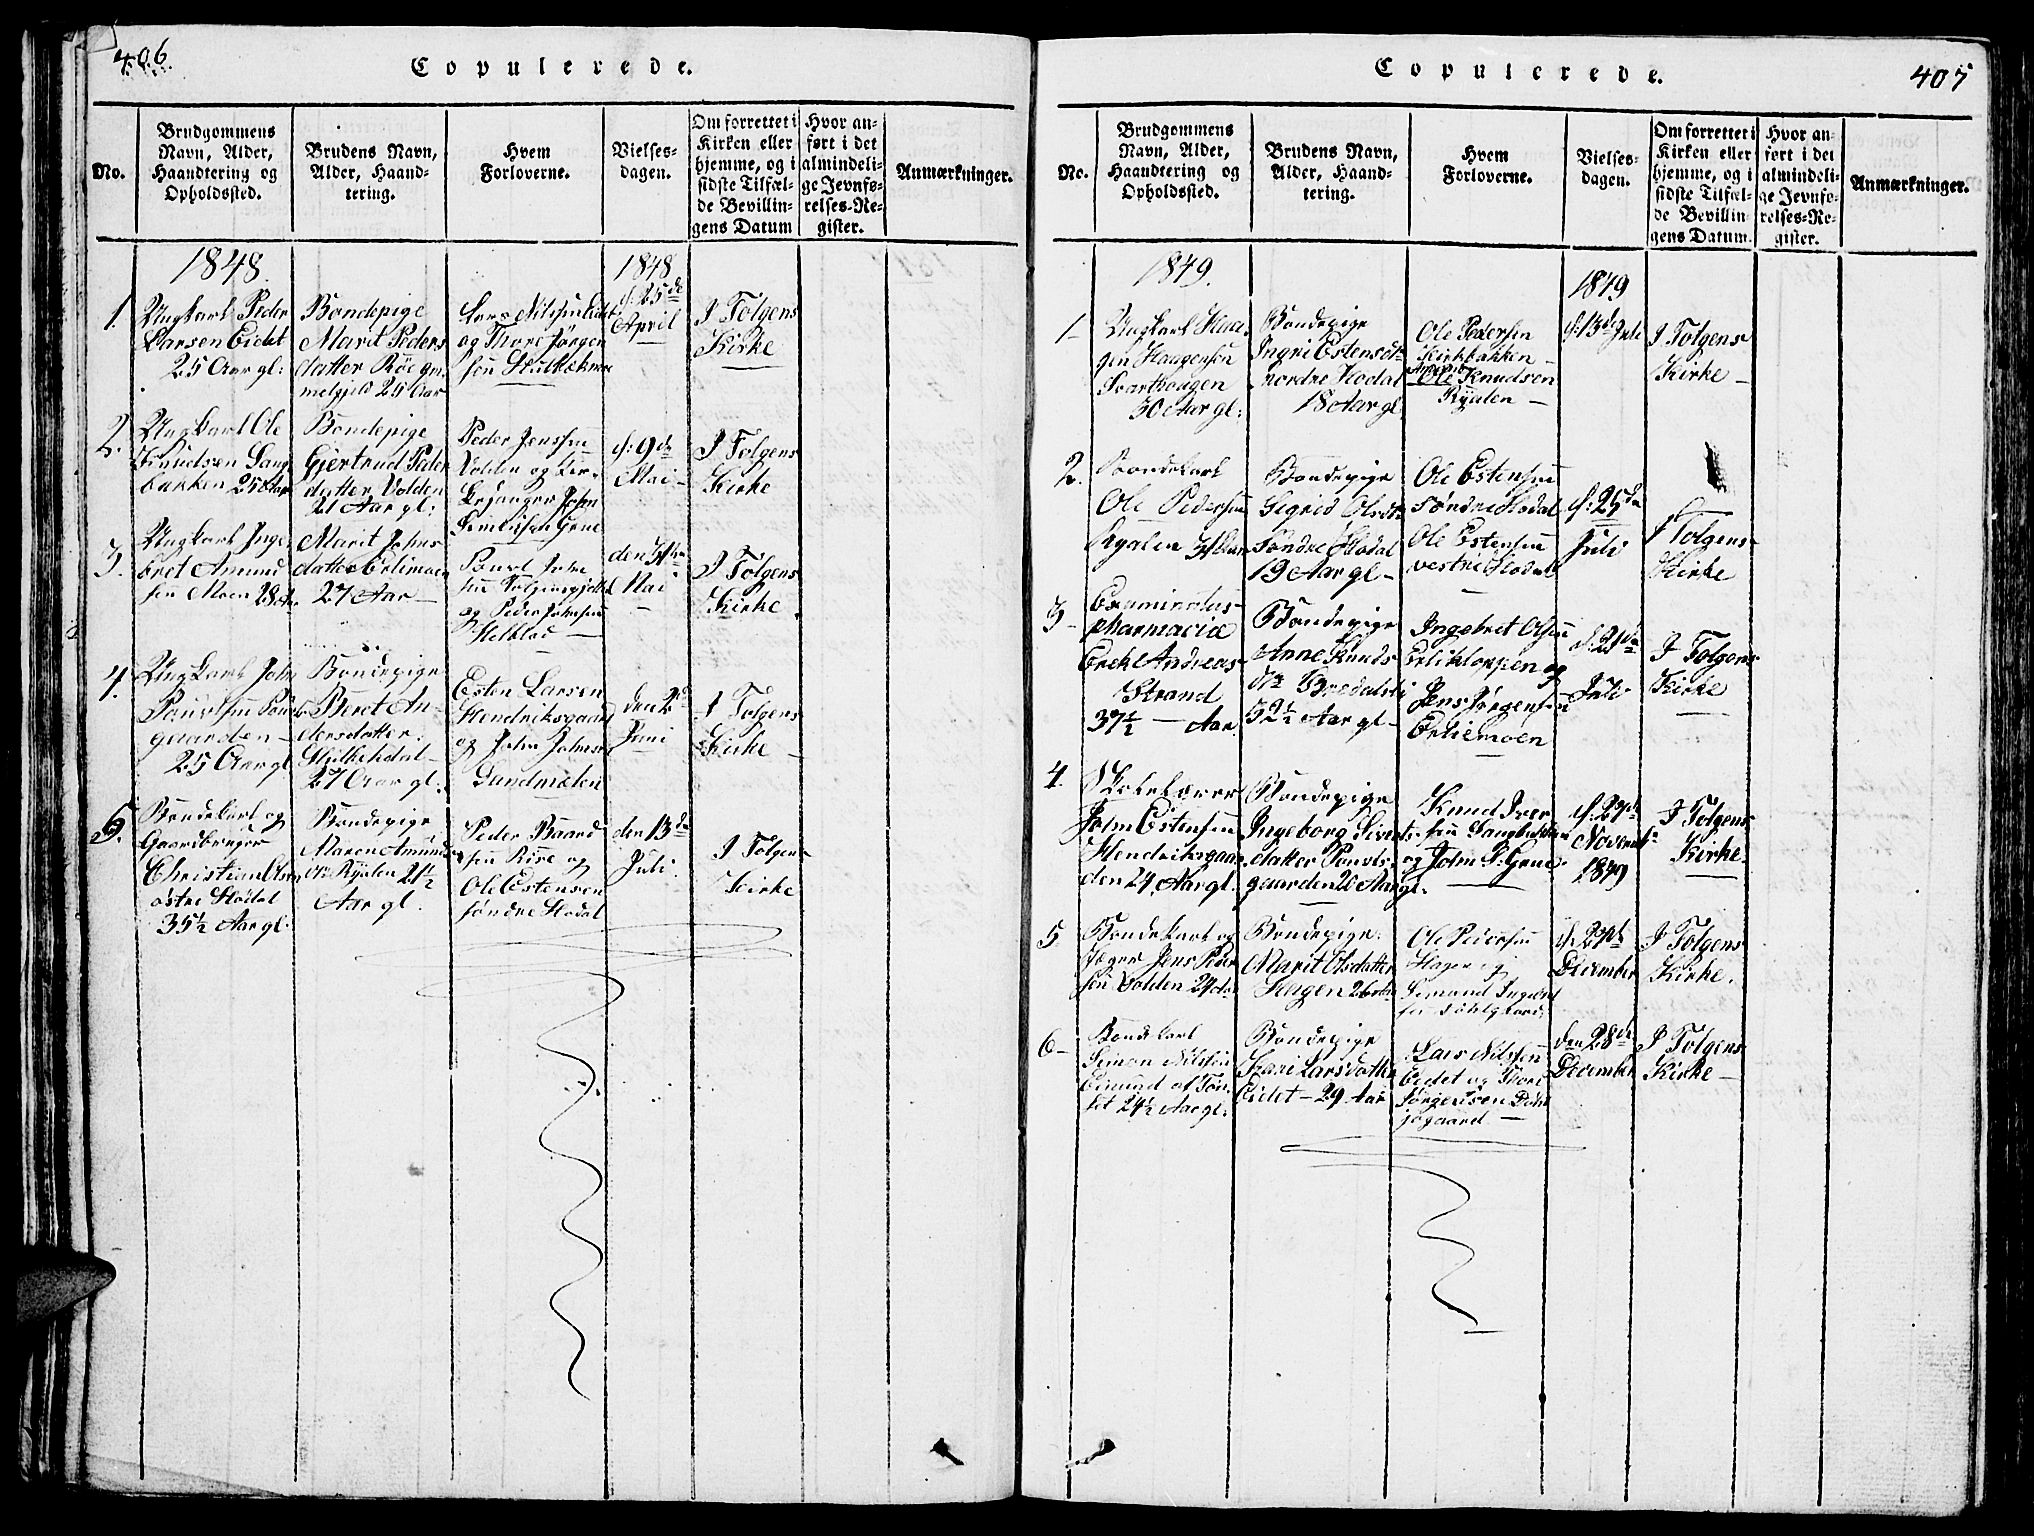 406
Copulerede.
No.
Brudgommens
Navn, Alder,
Haandtering og
Opholdssted.
Brudens Navn,
Alder, Haand-
tering.
Hvem
Forloverne.
Vielses-
dagen.
Om forrettet i
Kirken eller
hjemme, og i
sidste Tilfæl-
de Bevillin-
gens Datum
Hvor an-
ført i det
almindeli-
ge Jevnfø-
relses-Re-
gister.
Anmærkninger.
1848.
1848
1.
Ungkarl Peder
Larsen Eidet
25 Aar gl:
Bondepige
Marit Peders
datter Röe
25 Aar
Lars Nilssen Eidet
og Thore Jørgen
sen
d: 25de
April
I Tolgens
Kirke
2.
Ungkarl Ole
Knudsen Lang
bakken 25 Aar
Bondepige
Gjertrud Peder
datter Volden
21 Aar gl:
Peder Jenssen
Volden og Kir-
kesanger John
Simensen Grue
d: 9de
Mai
I Tolgens
Kirke
3.
Ungkarl Inge
bret Amund
sen Moen 28 Aar
Marit Johns
datter Erlimoen
27 Aar
Povel John
sen
og Peder Johnsen
den
Mai
I Tolgens
Kirke
4.
Ungkarl John
Paulsen Pouls
gaarden
25 Aar gl
Bondepige
Beret An-
dersdatter
27 Aar gl.
Esten Larsen
Hendriksgaard
og John Johnsen
Sundmoelen
den 2de
Juni
I Tolgens
Kirke
5.
Bondekarl og
Gaardbruger
Christian Olsen
östre Hodal
35½ Aar gl.
Bondepige
Maren Amunds
dtr Ryalen 21½
Aar gl.
Peder Baard
sen Riise og
Ole Estensen
söndre Hodal
den 13de
Juli.
I Tolgens
Kirke
Copulerede.
407
No.
Brudgommens
Navn, Alder,
Haandtering og
Opholdssted.
Brudens Navn,
Alder, Haand-
tering.
Hvem
Forloverne.
Vielses-
dagen.
Om forrettet i
Kirken eller
hjemme, og i
sidste Tilfæl-
de Bevillin-
gens Datum.
Hvor an-
ført i det
almindeli-
ge Jevnfø-
relses-Re-
gister.
Anmærkninger.
1849.
1849
1
Ungkarl Haa-
gen Haagensen
Svarthaugen
30 Aar gl:
Bondepige
Ingri Estensdtr
nordre Hodal
18 Aar gl
Ole Pedersen
Kirkbakken
Ole Knudsen
Ryalen
d: 13de Juli
I Tolgens
Kirke
2.
Bondekarl
Ole Pedersen
Ryalen
Bondepige
Sigrid Olsdtr
Söndre Hodal
19 Aar gl
Ole Estensen
söndre Hodal
Ole Estensen
vestre Hodal
d: 25de
Juli
I Tolgens
Kirke
3
Examinatus
pharmaciæ
Erek Andreas
Strand
37½ Aar
Bondepige
Anne Knuds
dtr
32½ Aar gl
Ingebret Olsen
Erlikloppen og
Jens Jørgensen
Erliemoen
Juli
I Tolgens
Kirke
4.
Skolelærer
John Estensen
Hendriksgaar
den 24 Aar gl.
Bondepige
Ingeborg Siverts
datter Pouls
gaarden 20 Aar gl.
Knud Iver
sen Langbakken
og John S. Grue
Novemb:
1849
I Tolgens
Kirke
5
Bondekarl og
Jæger Jens Peder
sen Volden 24 Aar
Bondepige
Marit Olsdatter
Hagen 26 Aar
Ole Pedersen
Hagen og
Simend
December
I Tolgens
Kirke.
6
Bondekarl
Simon Nilssen
Eimund af Tön
set 24½ Aar gl.
Bondepige
Kari Larsdatter
Eidet 29 Aar
Lars Nilssen
Eidet og Thore
Jørgensen
den 28de
December
I Tolgens
Kirke